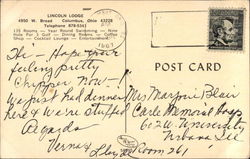 LINCOLN LODGE
4950 W. Broad Columbus, Ohio 43228
Telephone 878-5361
135 Rooms — Year Round Swimming — Nine
Hole Par 3 Golf — Dining Rooms — Coffee
Shop — Cocktail Lounge — Entertainment
1967
Hi - Hope you're
feeling pretty
Chipper Now -!
We just had dinner
here & We're stuffed
Regards
Verna &
Lloyd
POST CARD
Mrs Marjorie Blair
Carle Memorial Hosp
602 W. University
Urbana Ill
Room 261